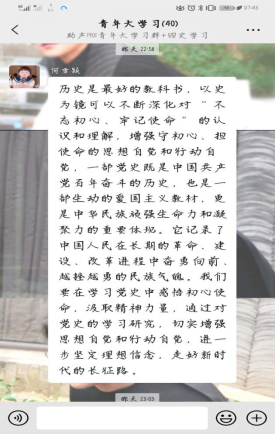 07:43
青年大学习(40)
助产1901青年大学习群+四史学习
昨天 22:58
历史是最好的教科书，以史
为镜可以不断深化对“不
忘初心、牢记使命”的认
识和理解，增强守初心、担
使命的思想自觉和行动自
觉，一部党史既是中国共产
党百年奋斗的历史，也是一
部生动的爱国主义教材，更
是中华民族顽强生命力和凝
聚力的重要体现。它记录了
中国人民在长期的革命、建
设、改革进程中奋勇向前、
越挫越勇的民族气魄。我们
要在学习党史中感悟初心使
命，汲取精神力量，通过对
党史的学习研究，切实增强
思想自觉和行动自觉，进一
步坚定理想信念，走好新时
代的长征路。
昨天 23:03